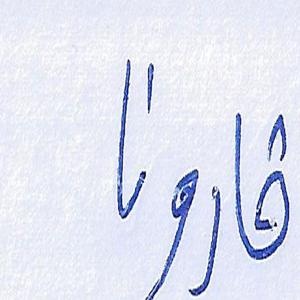 هارونا